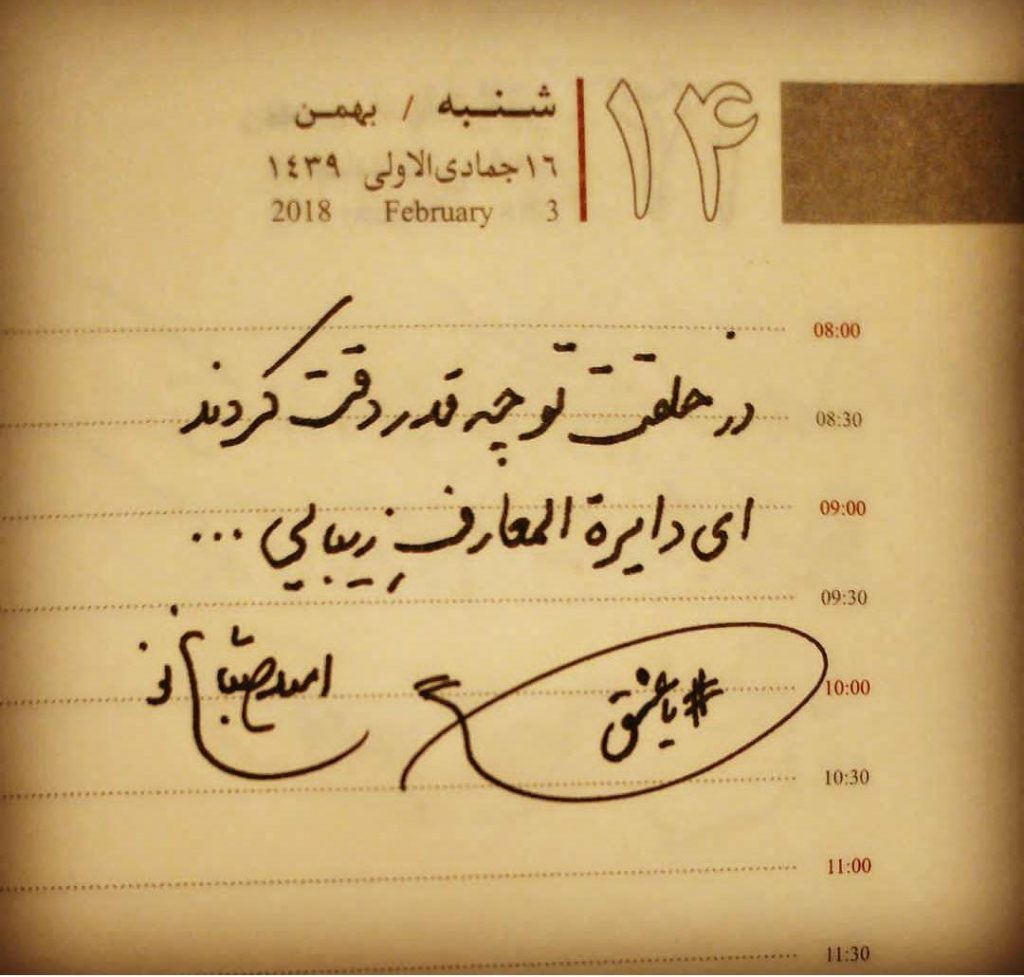 ۱۴
شنبه / بهمن
١٦ جمادی‌الاولی ١٤٣٩
2018 February 3
08:00
در خلقت تو چه قدر دقت کردند
08:30
09:00
ای دایرة المعارفِ زیبایی ...
09:30
10:00
#یا عشق
امید صباغ نو
10:30
11:00
11:30